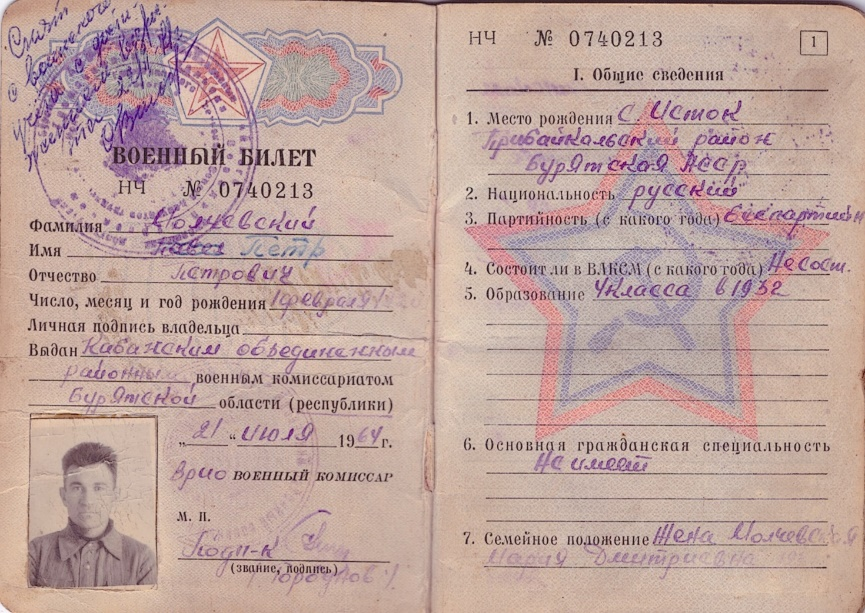 Снят
с воинского
учета
ВОЕННЫЙ БИЛЕТ
НЧ № 0740213
Фамилия Молчевский
Имя Павел Петр
Отчество Петрович
Число, месяц и год рождения 1 февраля
Личная подпись владельца
Выдан Кабанским объединенным
районным военным комиссариатом
Бурятской области (республики)
„21“ июля 1964 г.
Врио ВОЕННЫЙ КОМИССАР
М. П.
Подп-к
(звание, подпись)
НЧ № 0740213
1
I. Общие сведения
1. Место рождения с. Исток
Прибайкальский район
Бурятская АССР
2. Национальность русский
3. Партийность (с какого года) беспартийн
4. Состоит ли в ВЛКСМ (с какого года) Не сост.
5. Образование 4 класса в 1932
6. Основная гражданская специальность
Не имеет
7. Семейное положение Жена Молчевская
Мария Дмитриевна